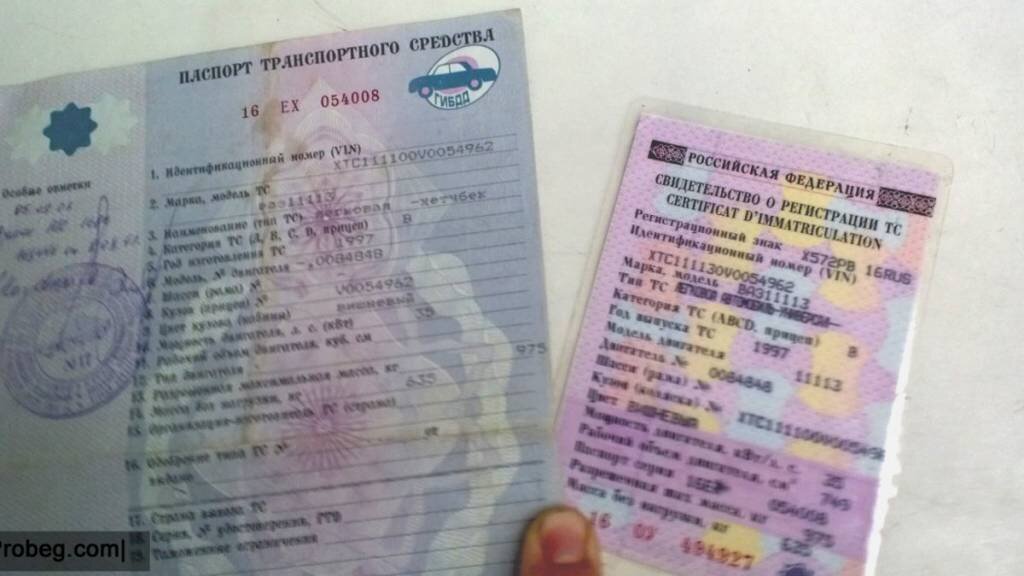 ПАСПОРТ ТРАНСПОРТНОГО СРЕДСТВА
16 ЕХ 054008
ГИБДД
Особые отметки
1. Идентификационный номер (VIN)
XTC111100V0054962
2. Марка, модель ТС
ваз11113
3. Наименование (тип ТС) легковая -хетчбек
4. Категория ТС (А, В, С, D, прицеп) В
5. Год изготовления ТС 1997
6. Модель, № двигателя -,0084848
Шасси (рама) №
Кузов (прицеп) № V0054962
Цвет кузова (кабины) вишневый
Мощность двигателя, л. с. (кВт) 35
Рабочий объем двигателя, куб. см
Тип двигателя 975
Разрешенная максимальная масса, кг
Масса без нагрузки, кг 635
15. Организация-изготовитель ТС (страна)
16. Одобрение типа ТС №
17. Страна вывоза ТС
18. Серия, № удостоверения, ГТД
19. Таможенные ограничения
Probeg.com|
РОССИЙСКАЯ ФЕДЕРАЦИЯ
СВИДЕТЕЛЬСТВО О РЕГИСТРАЦИИ ТС
CERTIFICAT D'IMMATRICULATION
Регистрационный знак Х572РВ 16RUS
Идентификационный номер (VIN)
XTC111130V0054962
Марка, модель ВАЗ11113
Тип ТС
Категория ТС (ABCD, прицеп) В
Год выпуска ТС 1997
Модель двигателя 11113
Двигатель № 0084848
Шасси (рама) №
Кузов (коляска) № XTC111100V0054
Цвет ВИШНЕВЫЙ
Мощность двигателя, кВт/л. с. 35
Рабочий объем двигателя, см³ 749
Паспорт серия 16ЕХ 054008
Разрешенная max масса, кг 975
Масса без нагрузки, кг 635
16 ОУ 494927